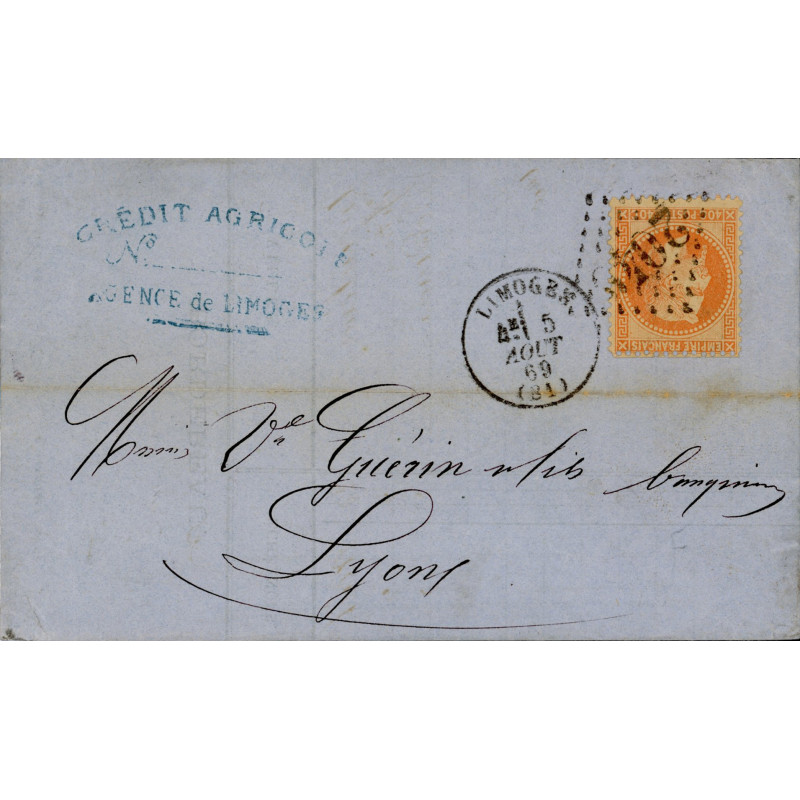 CRÉDIT AGRICOLE
No
AGENCE de LIMOGES
40 C POSTES 40 C
EMPIRE FRANÇAIS
LIMOGES
5
AOUT
69
(81)
Ve Guérin et fils banquiers
Lyon